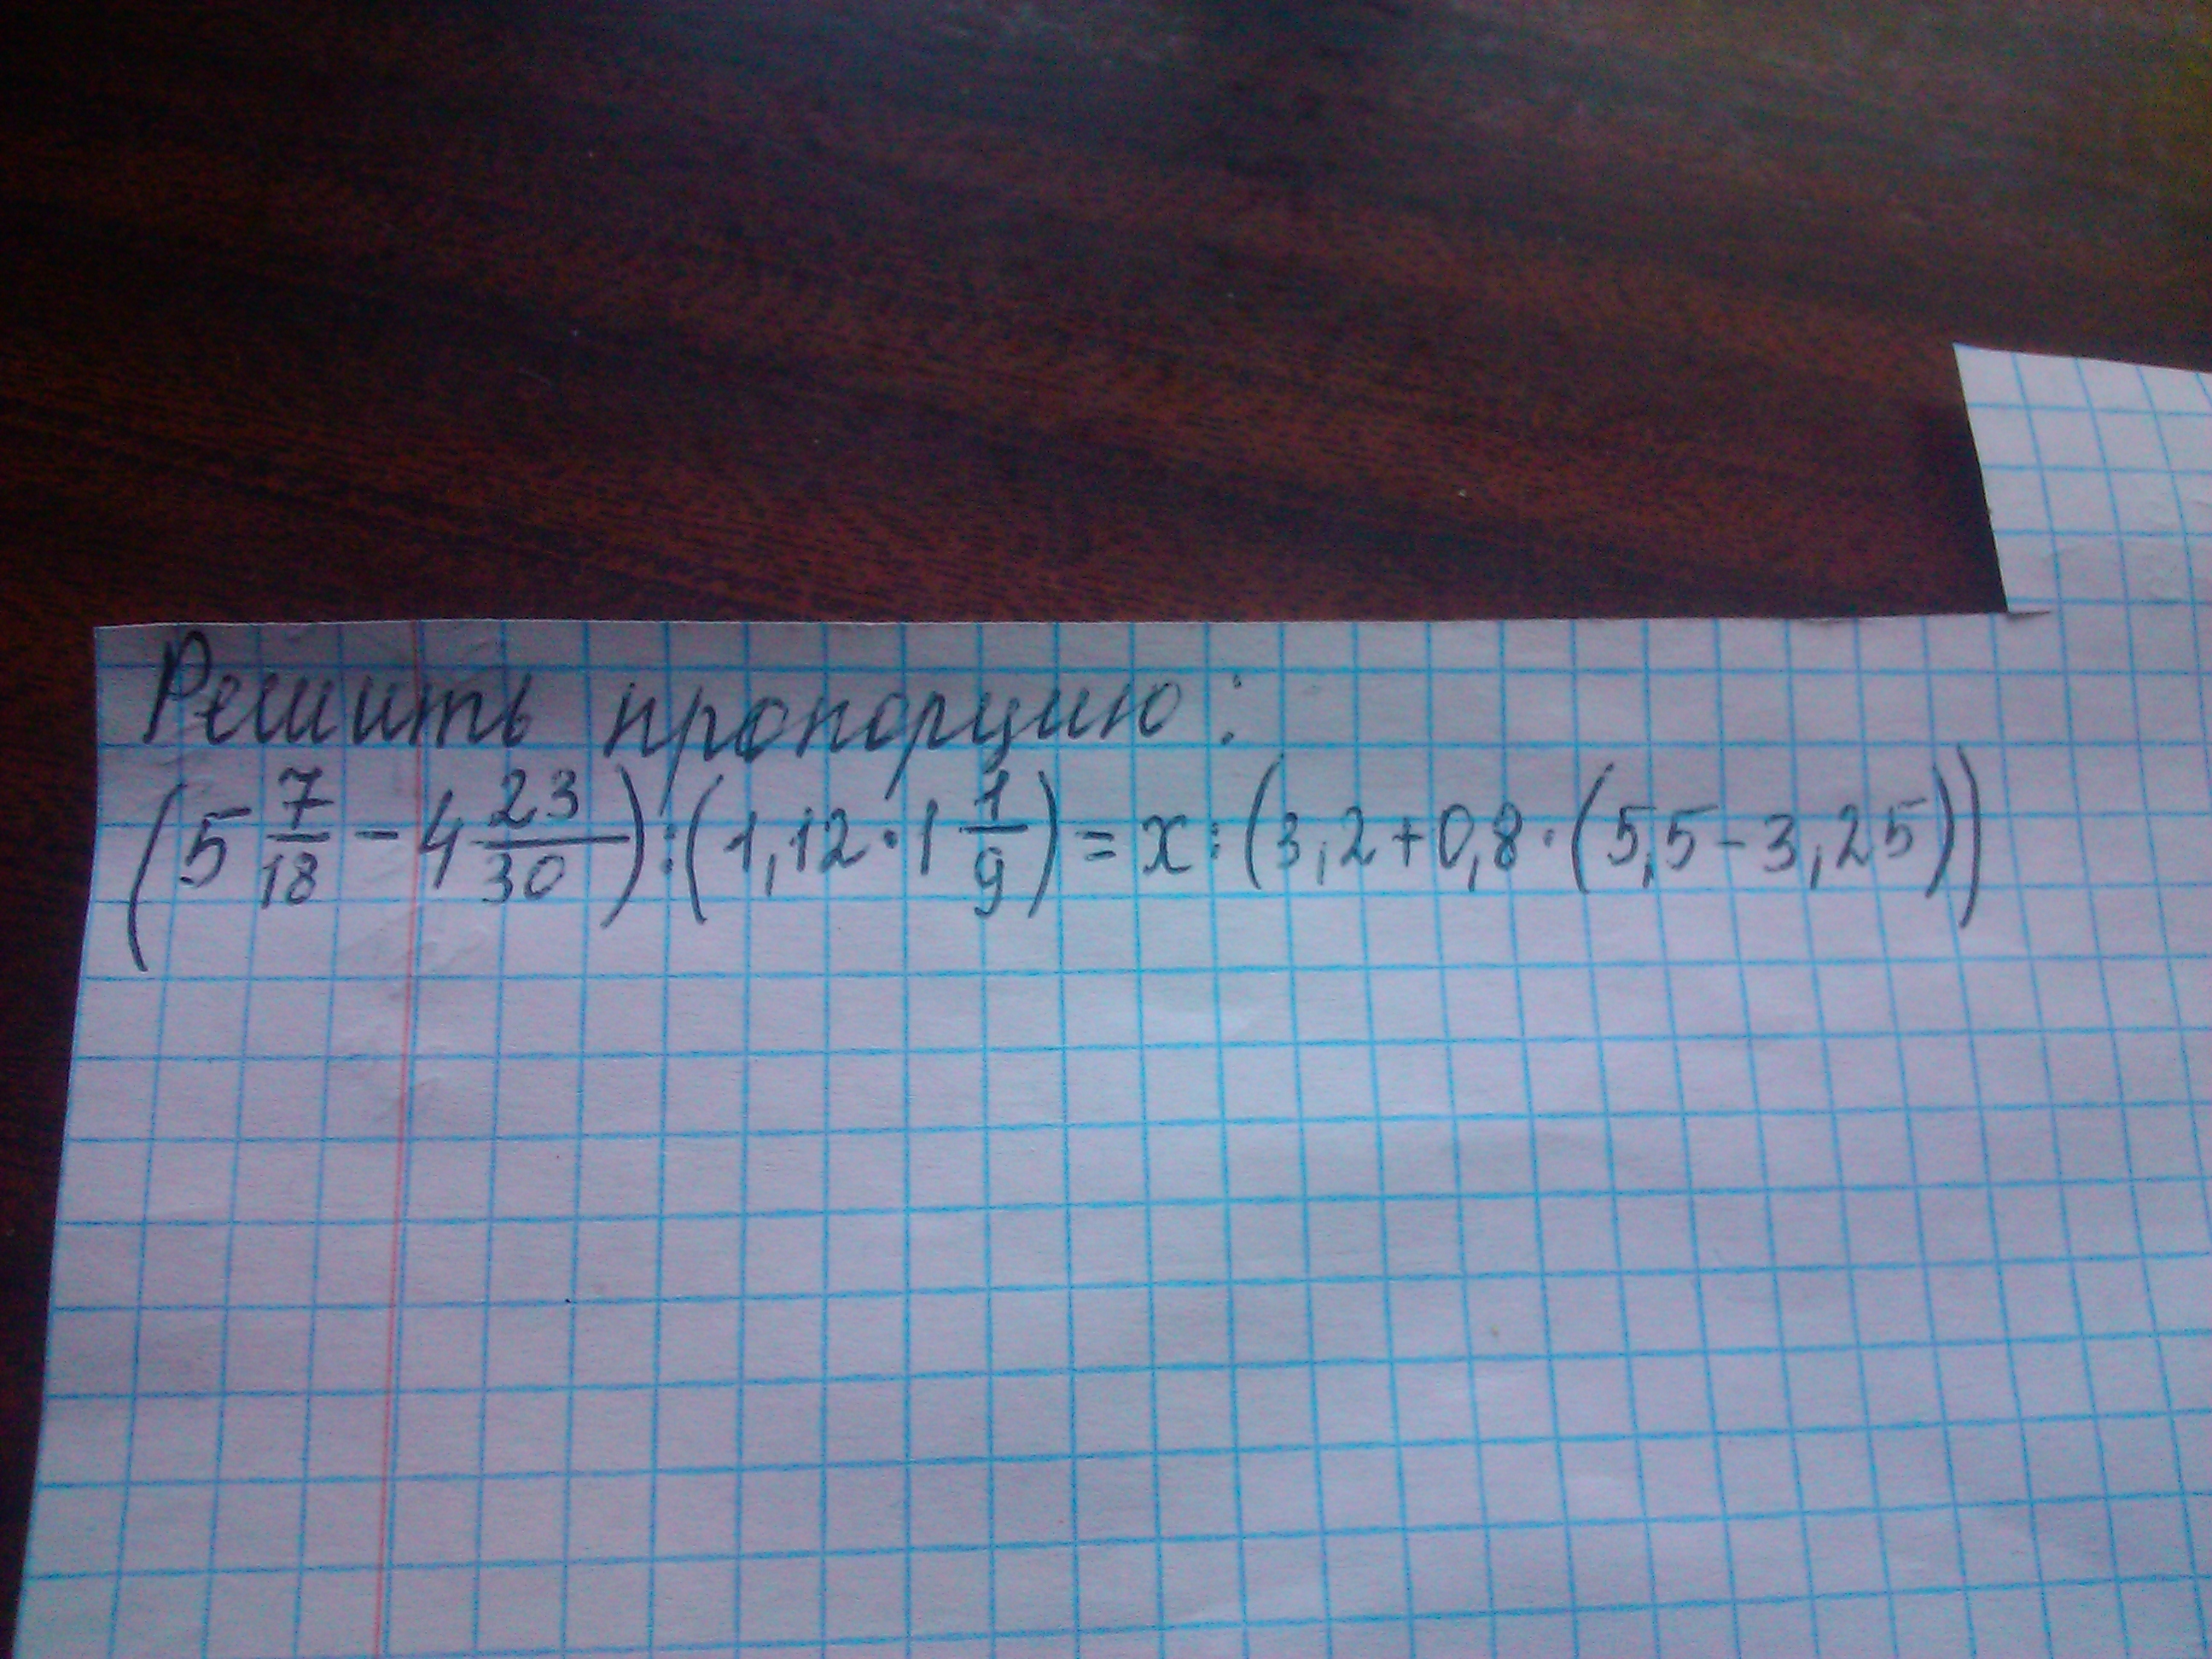 Решить пропорцию:
(5 7/18 - 4 23/30) : (1,12 · 1 1/9) = x : (3,2 + 0,8 · (5,5 - 3,25))